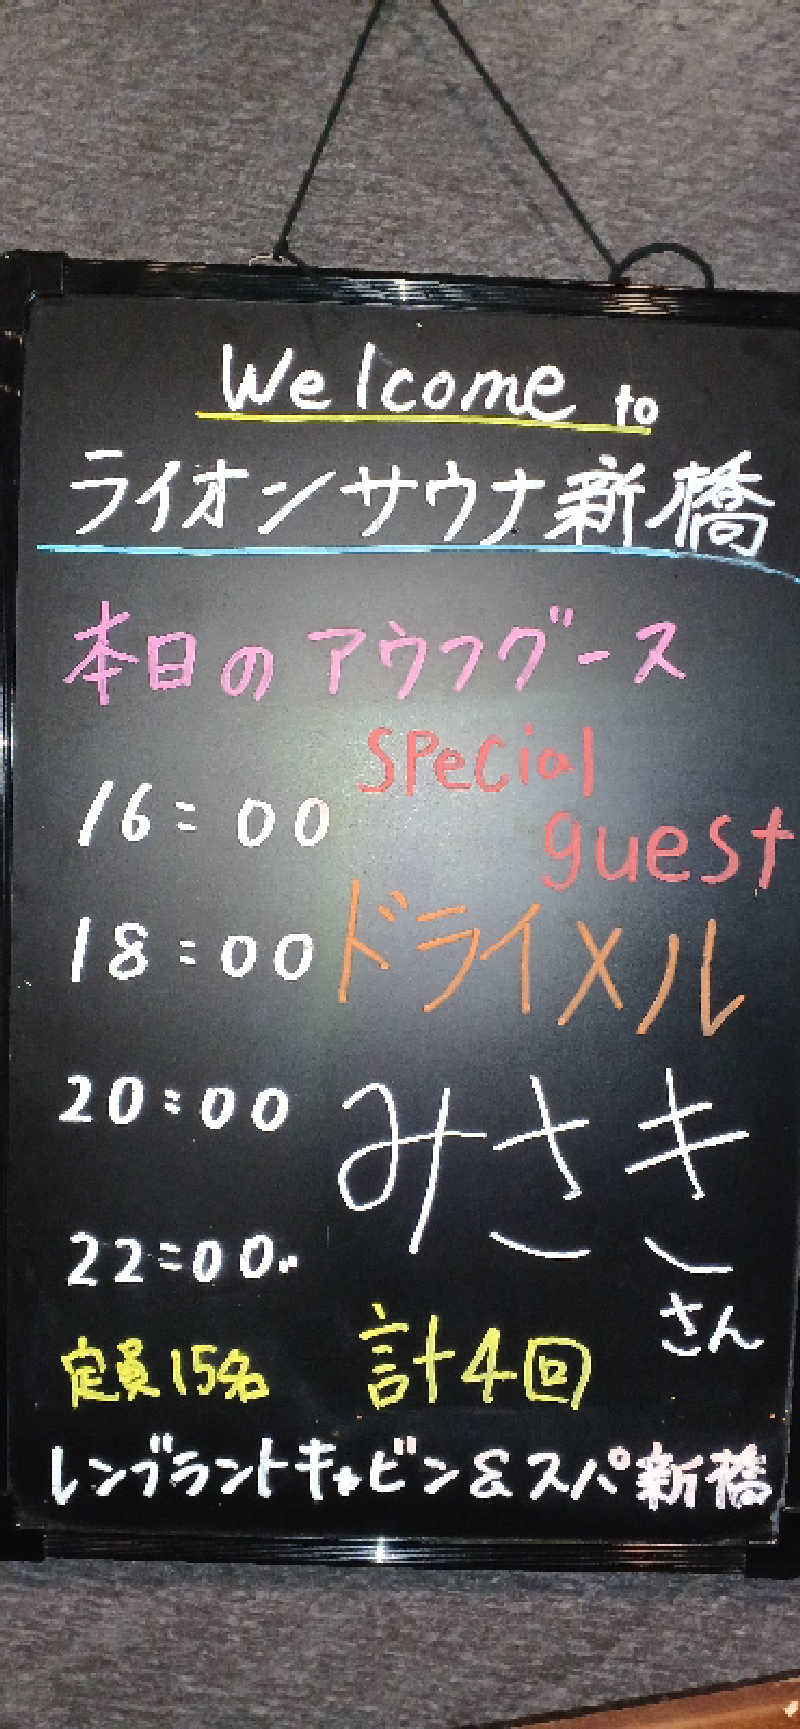 Welcome to
ライオンサウナ新橋
本日のアウフグース
Special
guest
16:00
18:00
ドライメル
20:00
みさき
さん
22:00
定員15名
計4回
レンブラントキャビン&スパ新橋